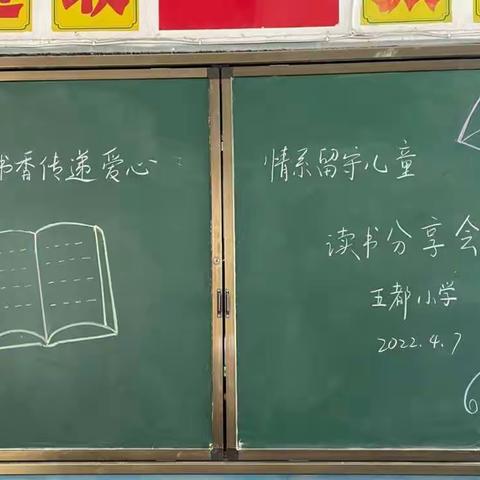 书香传递爱心
情系留守儿童
读书分享会
五都小学
2022.4.7